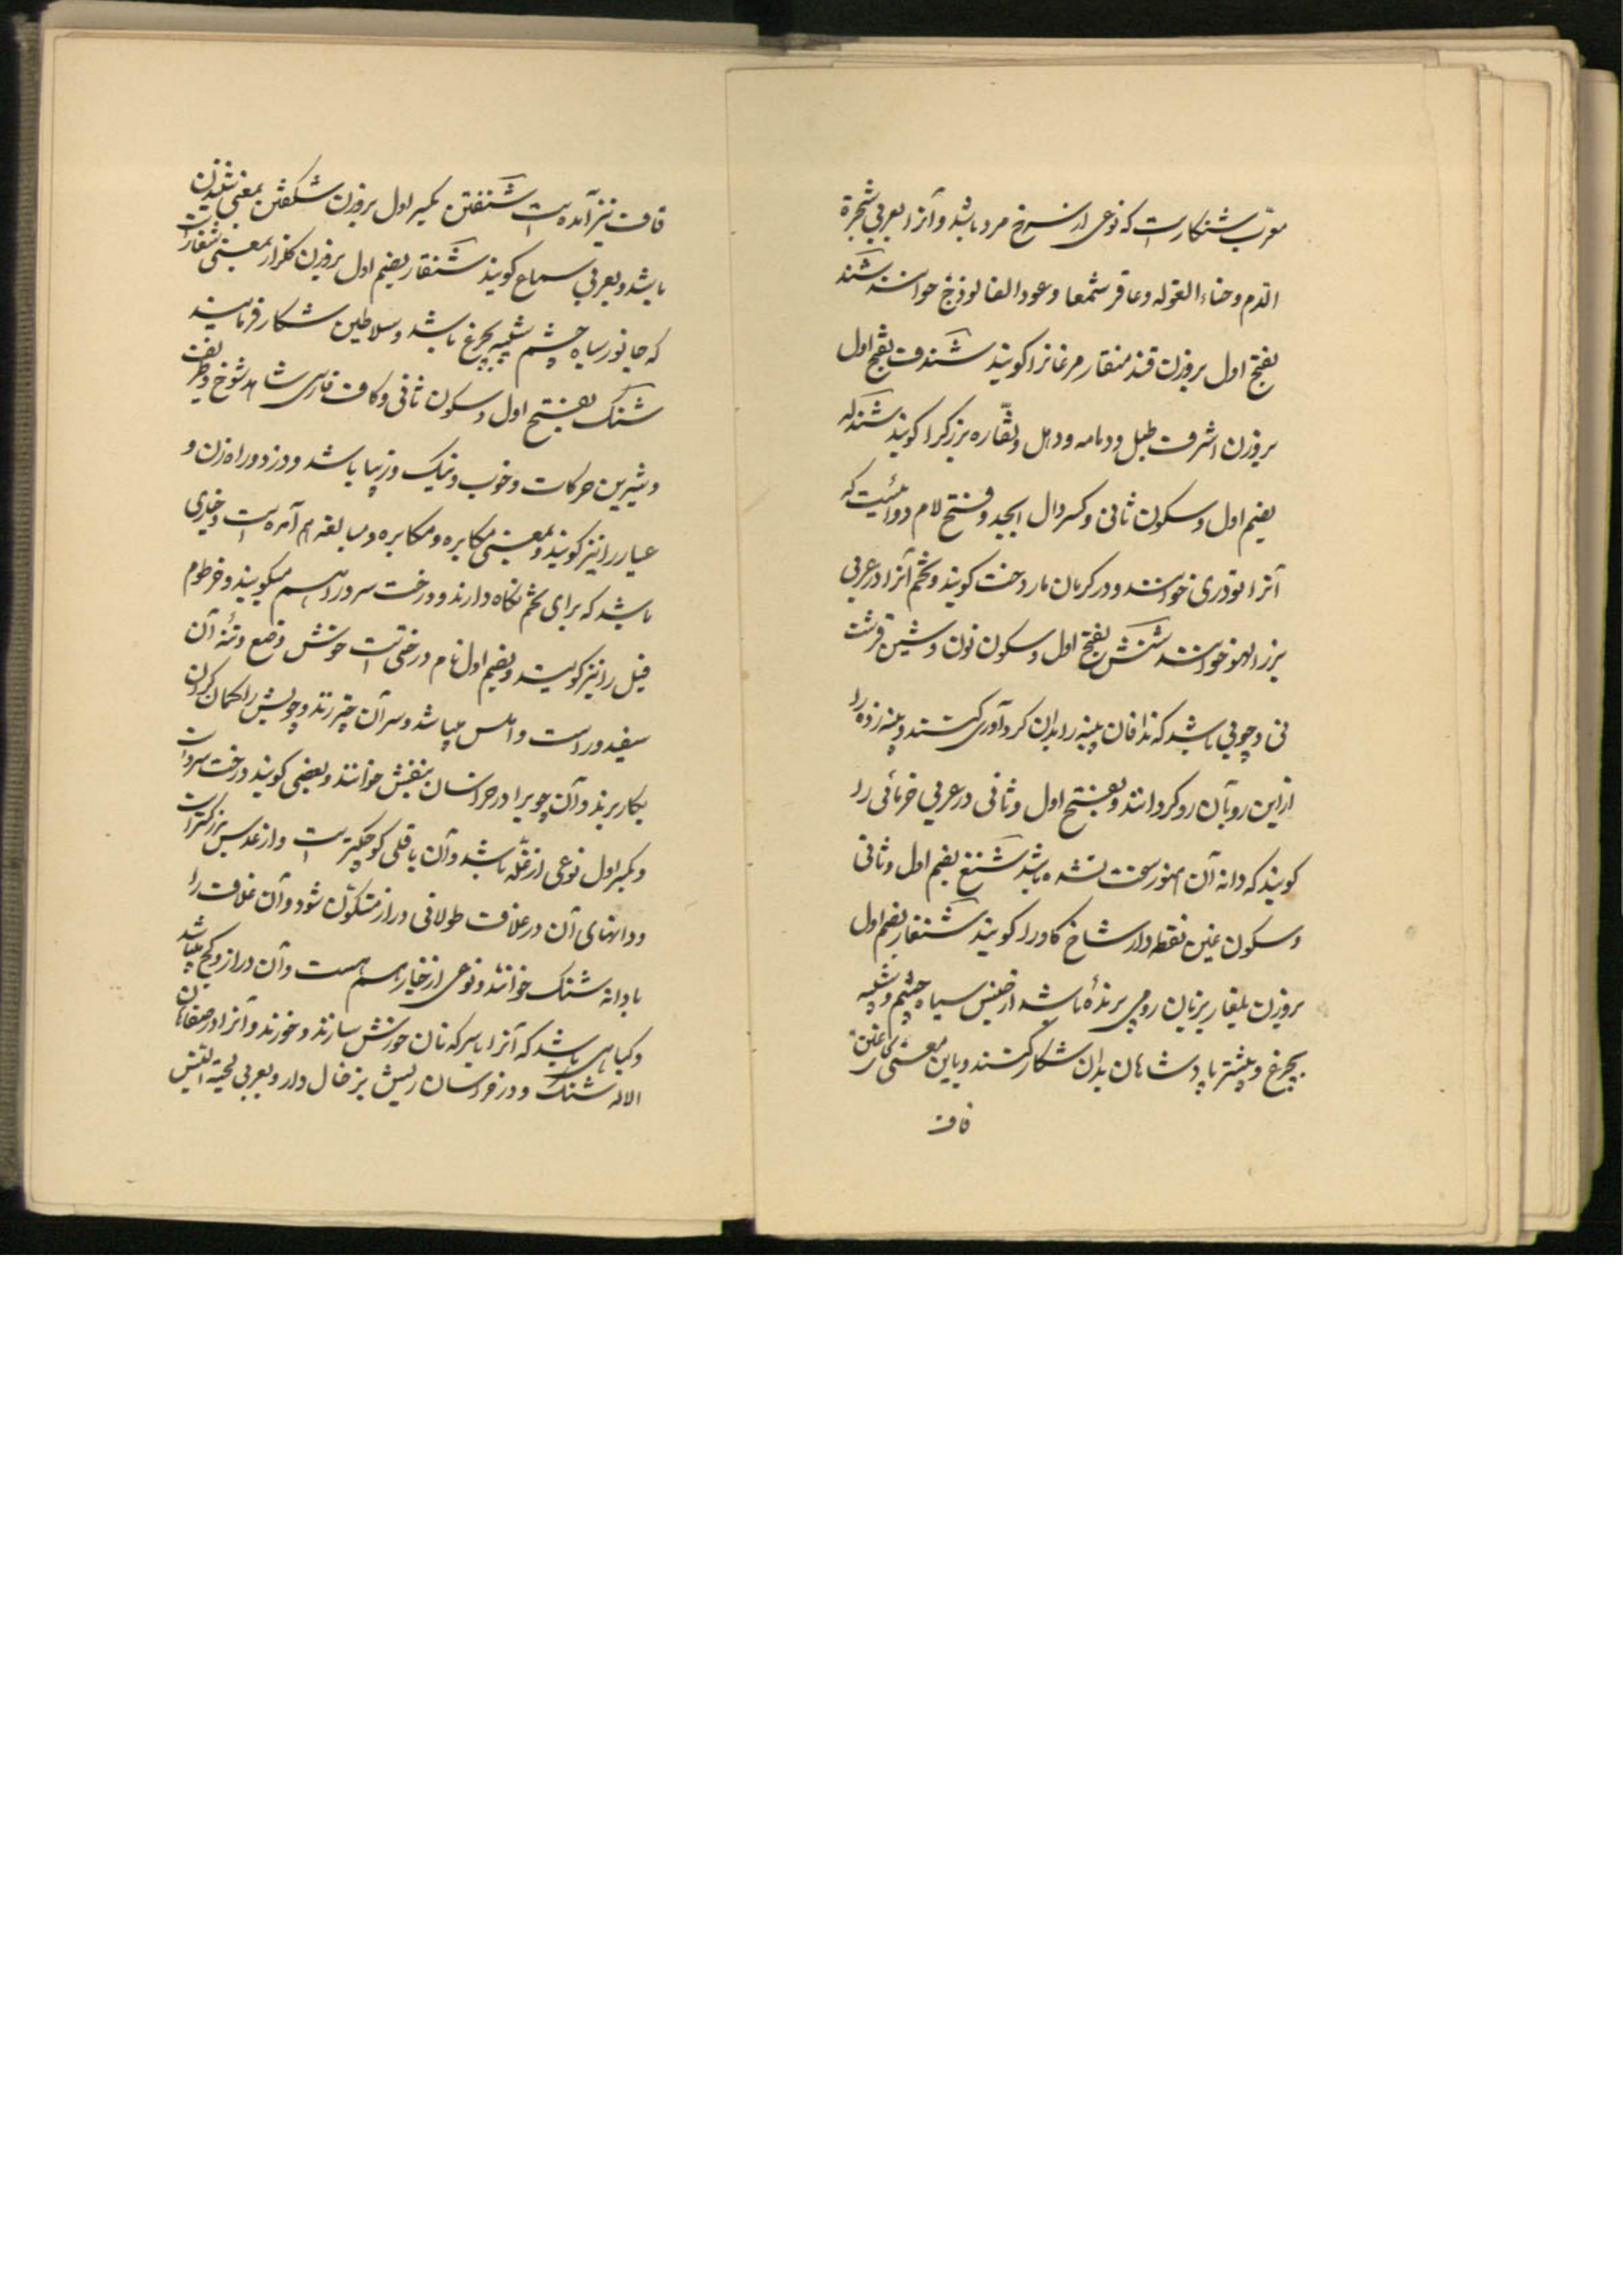 معرّب شنکار است که نوعی از سرخ مرد باشد و آنرا بعربی شجرة
الدم و حناء الغوله و عاقر شمعا و عود الفالوذج خوانند شند
بفتح اول بروزن قند منقار مرغانرا کویند شندف بفتح اول
بروزن اشرف طبل و دمامه و دهل و نقّاره بزرکرا کویند شندله
بضم اول و سکون ثانی و کسر دال ابجد و فتح لام دوائیست که
آنرا تودری خوانند و در کرمان مادر دخت کویند و تخم آنرا در عربی
بزر الهوه خوانند شنش بفتح اول و سکون نون و شین قرشت
نی و چوبی باشد که ندافان پنبه را بدان کردآوری کنند و پنبه زده را
از این رو بآن رو کردانند و بفتح اول و ثانی در عربی خرمائی را
کویند که دانه آن هنوز سخت نشده باشد شنغ بضم اول و ثانی
و سکون غین نقطه دار شاخ کاو را کویند شنغار بضم اول
بروزن بلغار بزبان رومی پرندهٔ باشد از جنس سیاه چشم و شبیه
بچرغ و بیشتر پادشاهان بدان شکار کنند و باین معنی بجای غین
قاف
قاف نیز آمده است شنفتن بکسر اول بروزن شکفتن بمعنی شنیدن
باشد و بعربی سماع کویند شنقار بضم اول بروزن کلزار بمعنی شنغار است
که جانور سیاه چشم شبیه بچرغ باشد و سلاطین شکار فرمایند
شنک بفتح اول و سکون ثانی و کاف فارسی شاهد شوخ و ظریف
و شیرین حرکات و خوب و نیک و زیبا باشد و دزد و راه زن و
عیار را نیز کویند و بمعنی مکابره و مکابره و مبالغه هم آمده است و خیاری
باشد که برای تخم نکاه دارند و درخت سرو را هم میکویند و خرطوم
فیل را نیز کویند و بضم اول نام درختی است خوش وضع و تنهٔ آن
سفید و راست و املس میباشد و سر آن چتر زند و چوبش را کمان کردن
بکار برند و آن چوبرا در خراسان بنفش خوانند و بعضی کویند درخت سرو است
و بکسر اول نوعی از غلّه باشد و آن باقلی کوچکتر است و از عدس بزرکتر است
و دانهای آن در غلاف طولانی دراز متکوّن شود و آن غلاف را
با دانه شنک خوانند و نوعی از خیار هم هست و آن دراز و کج میباشد
و کیاهی باشد که آنرا با سرکه نان خورش سازند و خورند و آنرا در صفاهان
الاله شنک و در خراسان ریش بز خال دار و بعربی لحیة التیس